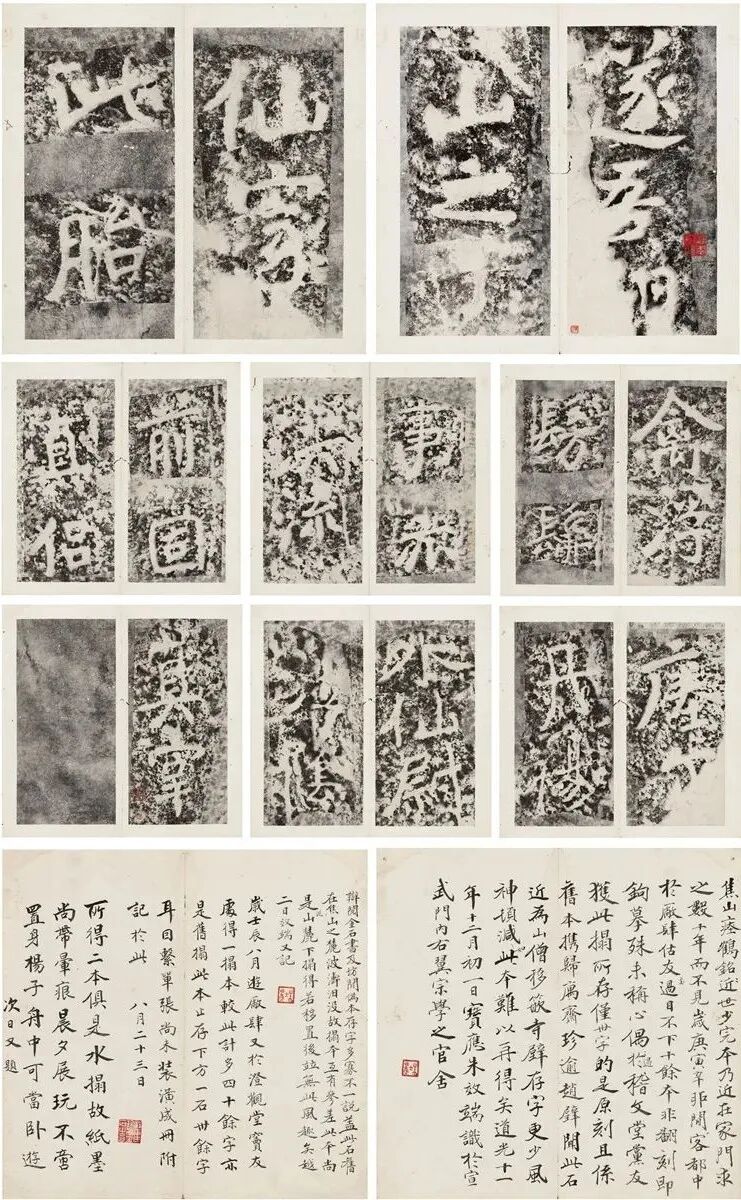 遂吾
山之下
仙家
此胎
禽浮
事亦
流
前固
侶
丹陽
外仙尉
江陰
真宰
焦山瘞鶴銘近世少完本乃近在家門求
之數十年而不見歲庚寅辛卯間客都中
於廠肆估友過目不下十餘本非翻刻即
鉤摹殊未稱心偶過於稽文堂黨友
獲此搨所存僅廿字的是原刻且係
舊本攜歸寓齋珍逾趙璧聞此石
近為山僧移嵌寺壁存字更少風
神頓減此本難以再得矣道光十一
年十二月初一日寶應朱端識於宣
武門內右翼宗學之官舍
閣全書及坊間偽本存字多寡不一說蓋此石舊
在焦山之麓波濤汨沒故搨本互有參差此本尚
是山之麓下搨得若移置後並無此風趣矣越
二日端又記
歲壬辰八月遊廠肆又於澄觀堂竇友
處得一搨本較此計多四十餘字亦
是舊搨此本止存下方一石廿餘字
耳因繫單張尚未裝潢成冊附
記於此 八月二十三日
所得二本俱是水搨故紙墨
尚帶暈痕晨夕展玩不啻
置身楊子舟中可當臥遊
次日又題